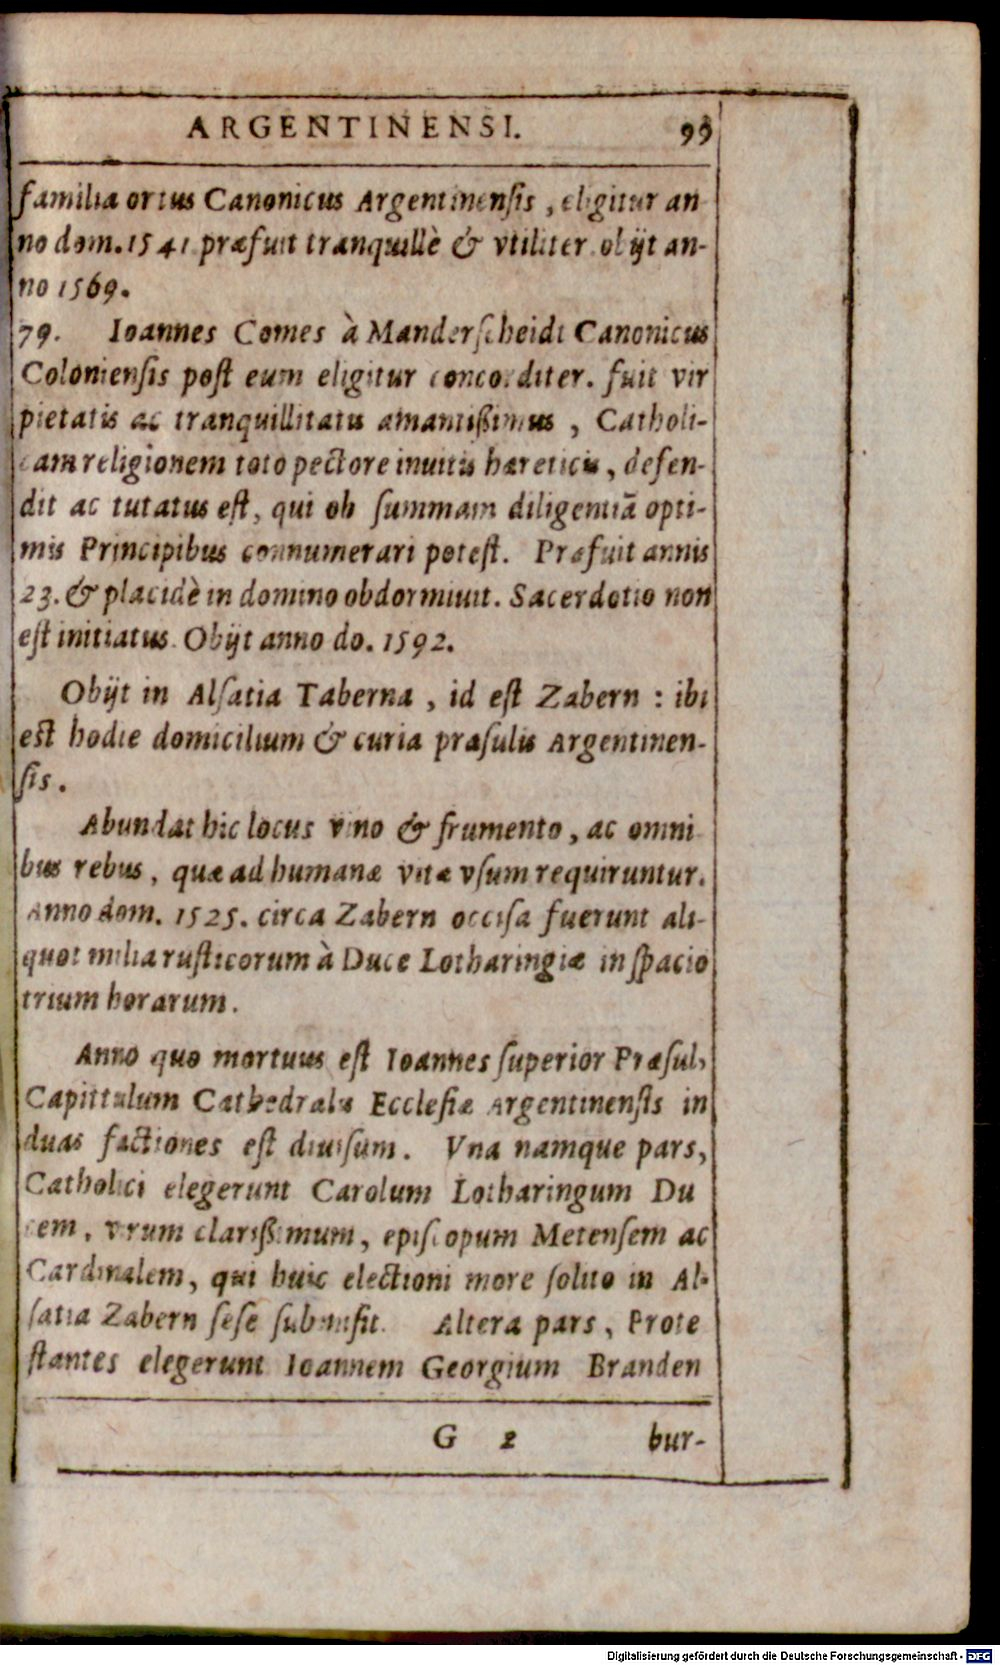 ARGENTINENSI. 99
familia ortus Canonicus Argentinensis, eligitur an
no dom. 1541 præfuit tranquillè & vtiliter obijt an-
no 1569.
79. Ioannes Comes à Manderscheidt Canonicus
Coloniensis post eum eligitur concorditer. fuit vir
pietatis ac tranquillitatis amantißimus, Catholi-
cam religionem toto pectore inuitis hæreticis, defen-
dit ac tutatus est, qui ob summam diligentiã opti-
mis Principibus connumerari potest. Præfuit annis
23. & placidè in domino obdormiuit. Sacerdotio non
est initiatus. Obijt anno do. 1592.
Obijt in Alsatia Taberna, id est Zabern: ibi
est hodie domicilium & curia præsulis Argentinen-
sis.
Abundat hic locus vino & frumento, ac omni
bus rebus, quæ ad humanæ vitæ vsum requiruntur.
Anno dom. 1525. circa Zabern occisa fuerunt ali-
quot milia rusticorum à Duce Lotharingiæ in spacio
trium horarum.
Anno quo mortuus est Ioannes superior Præsul,
Capittulum Cathedralis Ecclesiæ Argentinensis in
duas factiones est diuisum. Vna namque pars,
Catholici elegerunt Carolum Lotharingum Du
cem, virum clarißimum, episcopum Metensem ac
Cardinalem, qui huic electioni more solito in Al-
satia Zabern sese submisit. Altera pars, Prote
stantes elegerunt Ioannem Georgium Branden
G 2 bur-
Digitalisierung gefördert durch die Deutsche Forschungsgemeinschaft - DFG